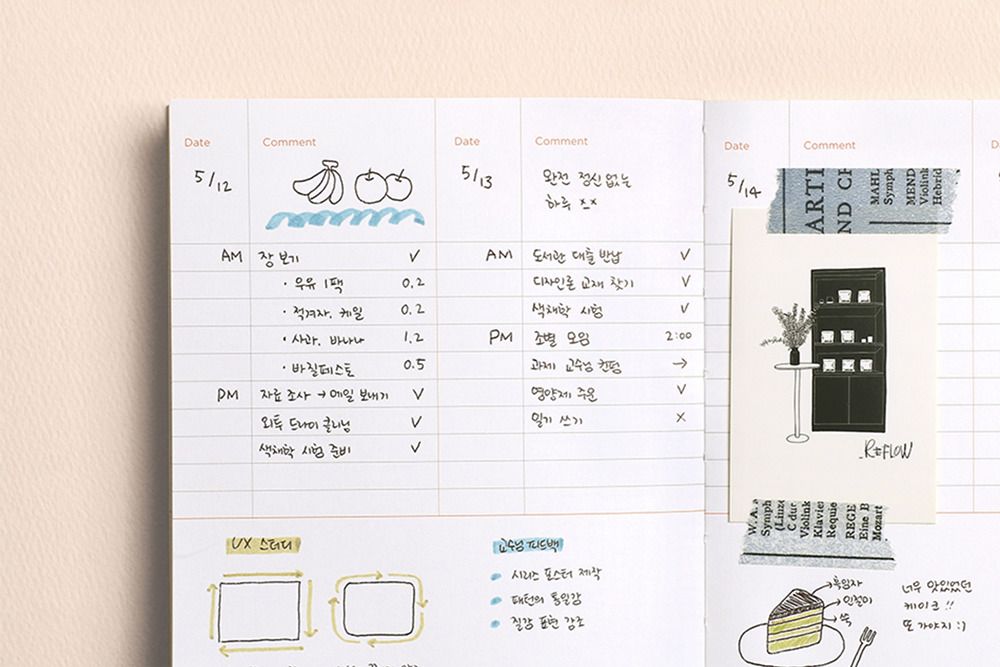 Date Comment
5/12
AM 장 보기 ✓
· 우유 1팩 0.2
· 적겨자. 케일 0.2
· 사과. 바나나 1.2
· 바질페스토 0.5
PM 자료 조사 → 메일 보내기 ✓
외투 드라이 클리닝 ✓
색채학 시험 준비 ✓
UX 스터디
Date Comment
5/13 완전 정신 없는
하루 xx
AM 도서관 대출 반납 ✓
디자인론 교재 찾기 ✓
색채학 시험 ✓
PM 조별 모임 2:00
과제 교수님 컨펌 →
영양제 주문 ✓
일기 쓰기 x
교수님 피드백
시리즈 포스터 제작
패턴의 통일감
질감 표현 강조
Date Comment
5/14
ARTI
ND CH
MAHL
Symph
MEND
Violink
Hebrid
REFLOW
W. A.
Symph
(Linze
C dur
Violink
Klavier
Requie
REGE
Eine B
Mozart
흑임자
인절미
쑥
너무 맛있었던
케이크 !!
또 가야지 :)